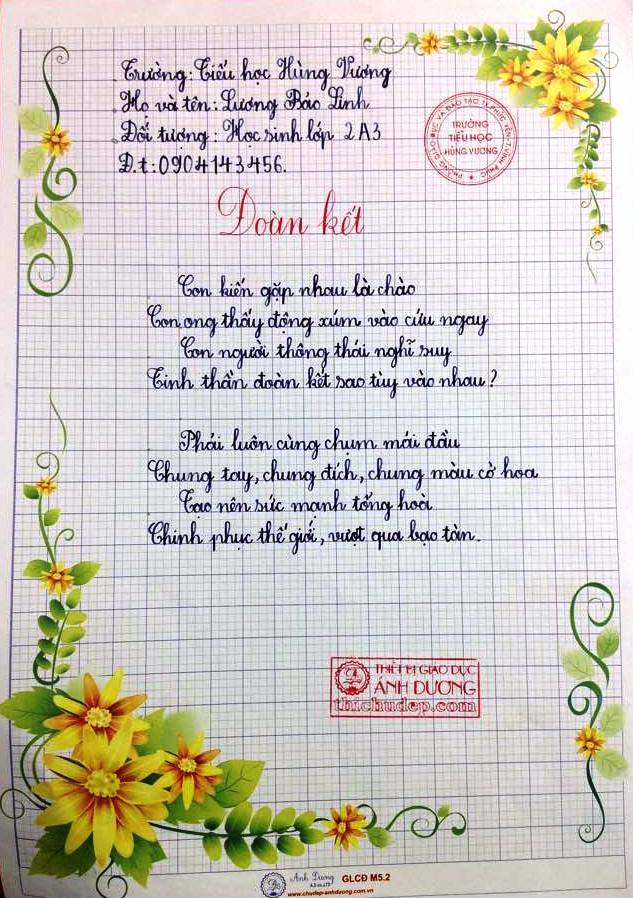 Trường: Tiểu học Hùng Vương
Họ và tên: Lương Bảo Linh
Đối tượng: Học sinh lớp 2A3
Đ.t: 0904143456.
PHÒNG GIÁO DỤC VÀ ĐÀO TẠO TX.PHÚC YÊN-T.VĨNH PHÚC
TRƯỜNG
TIỂU HỌC
HÙNG VƯƠNG
Đoàn kết
Con kiến gặp nhau là chào
Con ong thấy động xúm vào cứu ngay
Con người thông thái nghĩ suy
Tinh thần đoàn kết sao tùy vào nhau?
Phải luôn cùng chụm mái đầu
Chung tay, chung đích, chung màu cờ hoa
Tạo nên sức mạnh tổng hoà
Chinh phục thế giới, vượt qua bạo tàn.
THIẾT BỊ GIÁO DỤC
ÁNH DƯƠNG
thichudep.com
Ánh Dương
GLCĐ M5.2
www.chudep-anhduong.com.vn